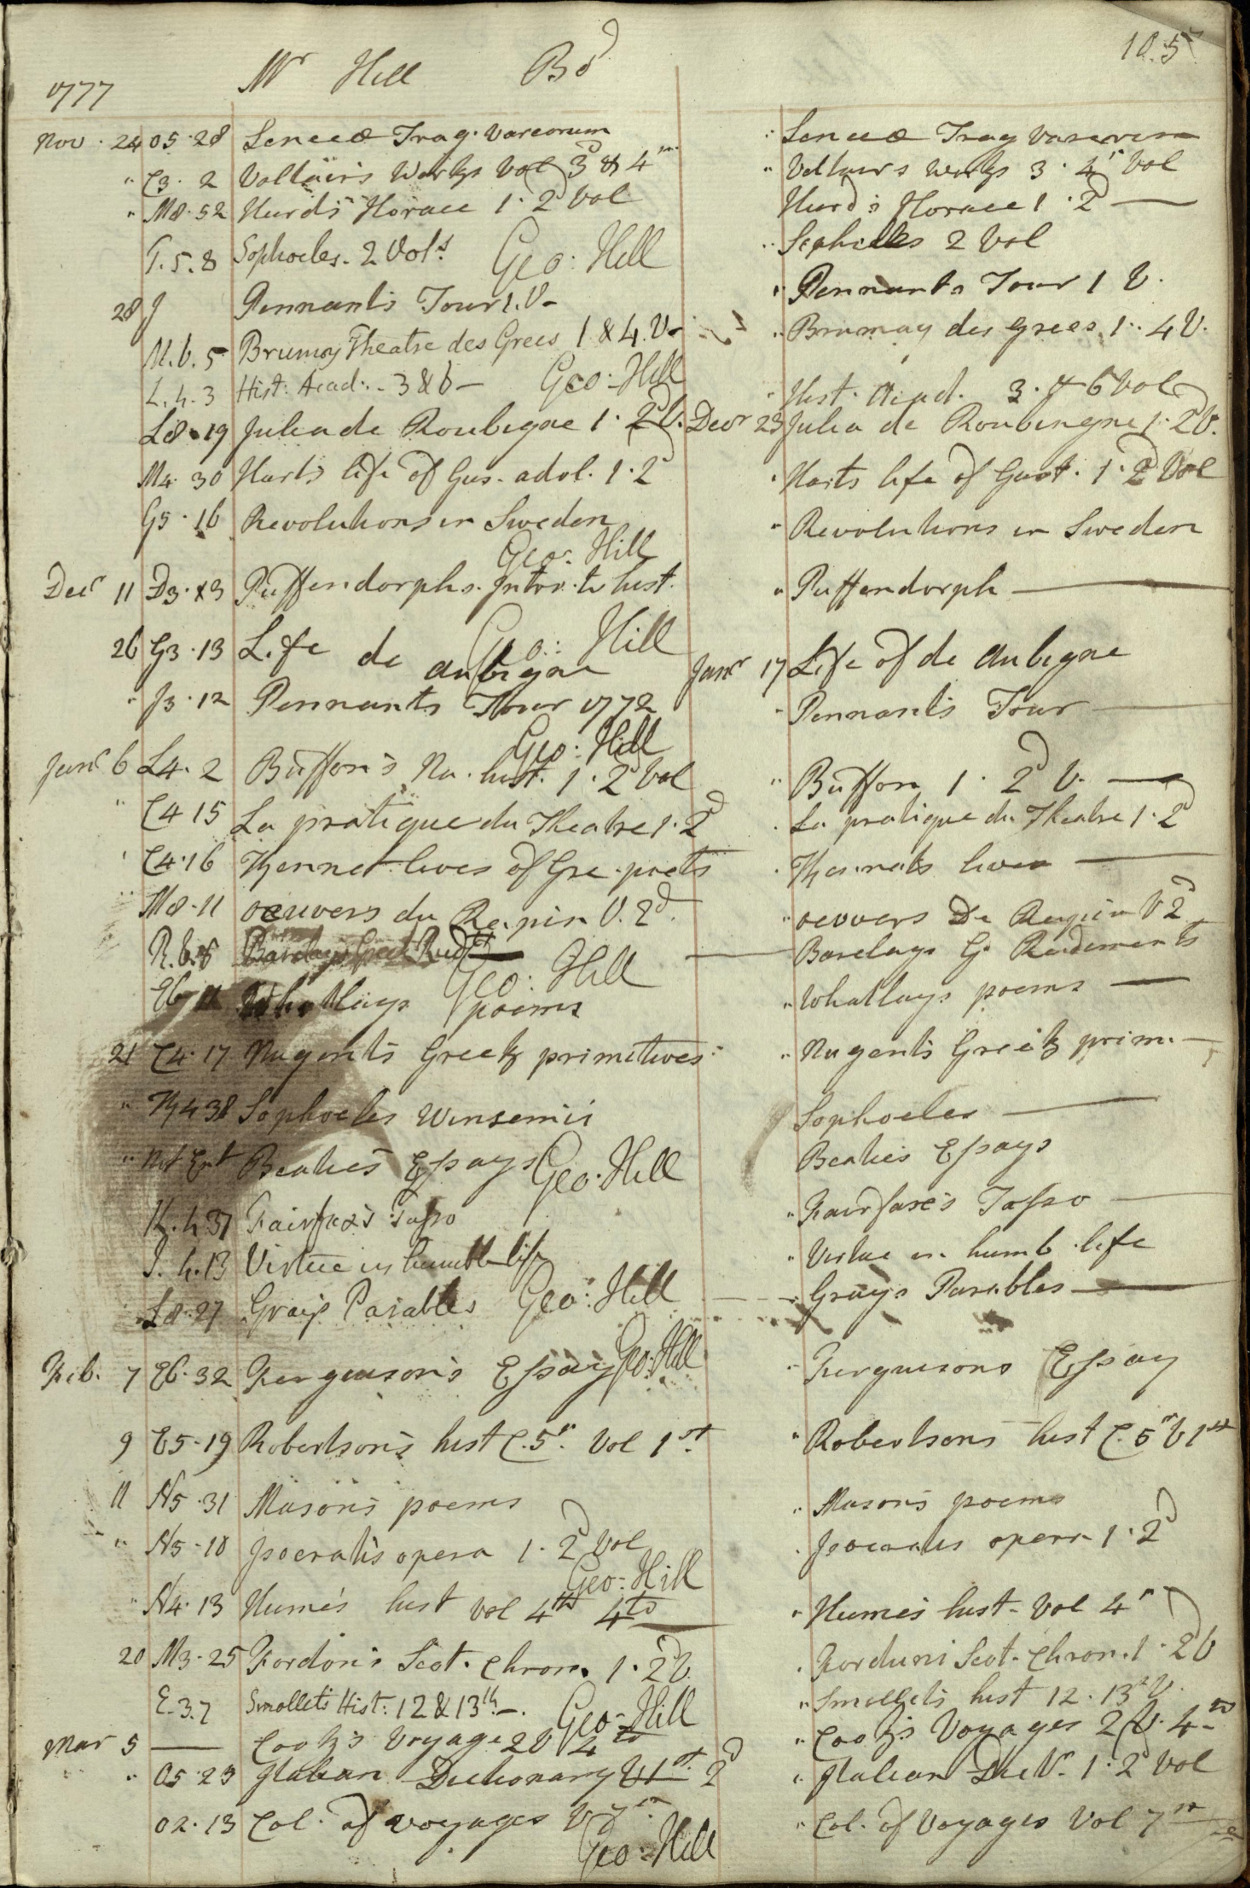 10.5
1777 Mr Hill Bd
Nov. 24 O5.28 Senecæ Trag. Vareorum " Senecæ Trag Varerum
" C3. 2 Voltairs Works Vol 3d & 4th " Voltairs Works 3. 4th Vol
" M8.52 Hurds Horace 1. 2d Vol " Hurds Horace 1. 2d
T.5.8 Sophocles. 2 Vols Geo: Hill " Sophocles 2 Vol
28 J Pennants Tour 1.V. " Pennants Tour 1 V.
M.6.5 Brumoy Theatre des Grecs 1 & 4.V. " Brumoy des Grees 1.. 4 V.
L.4.3 Hist: Acad:. 3 & 6 Geo: Hill Hist. Acad. 3. & 6 Vol
L8.19 Julia de Roubigne 1. 2d V. Decr 23 Julia de Roubingne 1. 2 V.
M4. 30 Harts life of Gus. adol. 1. 2d " Harts life of Gust. 1. 2d Vol
G5.16 Revolutions in Sweden " Revolutions in Sweden
Geo: Hill
Decr 11 D3.83 Puffendorphs. Intro. to hist. " Puffendorph
26 G3.13 Life de aubigne Geo: Hill Janr 17 Life of de Aubigne
" J3.12 Pennants Tour 1772 " Pennants Tour
Geo: Hill
Janr 6 L4. 2 Buffon's Na. hist. 1. 2d Vol " Buffon 1. 2d V.
" C4 15 La pratique du Theatre 1. 2d " La pratique du Theatre 1. 2d
" C4.16 Kennet lives of Gre. poets " Kennets lives
" M8.11 oeuvers du Rapin V. 2d. " oeuvers De Rapin V 2d
R.6.8 Barclays Greek Rudts Geo: Hill Barclays G. Rudements
E6 Whatlays poems " Whatlays poems
21 C4.17 Nugents Greek primetives " Nugents Greek prim.
" K4 38 Sophocles Winsemii Sophocles
" Not Ent Beaties Essays Geo: Hill Beaties Essays
K.4.37 Fairfax's Tasso " Fairfaxes Tasso
I.4.13 Virtue in humble life " Virtue in humb. life
L8.27 Grays Parables Geo: Hill Grays Parables
Feb. 7 E6.32 Fergusons Essay Geo: Hill " Fergusons Essay
9 E5.19 Robertsons hist C. 5th. Vol 1st " Robertsons hist C. 5th V 1st
11 N5.31 Masons poems " Masons poems
" N5.10 Isocratis opera 1. 2d Vol " Isocratis opera 1. 2d
Geo: Hill
" N4.13 Humes hist Vol 4th 4to " Humes hist. Vol 4th
20 M3.25 Fordon's Scot. Chron. 1. 2d V. " Forduni Scot. Chron. 1. 2d V
E.3.7 Smollets Hist: 12 & 13th. Geo: Hill " Smollets hist 12. 13th V.
Mar 5 Cooks Voyage 2 V 4to " Cooks Voyages 2 V. 4to
" O5.23 Italian Dictionary V 1st. 2d " Italian Dicty. 1. 2d Vol
O2.13 Col. of voyages V 7th " Col. of Voyages Vol 7th
Geo: Hill